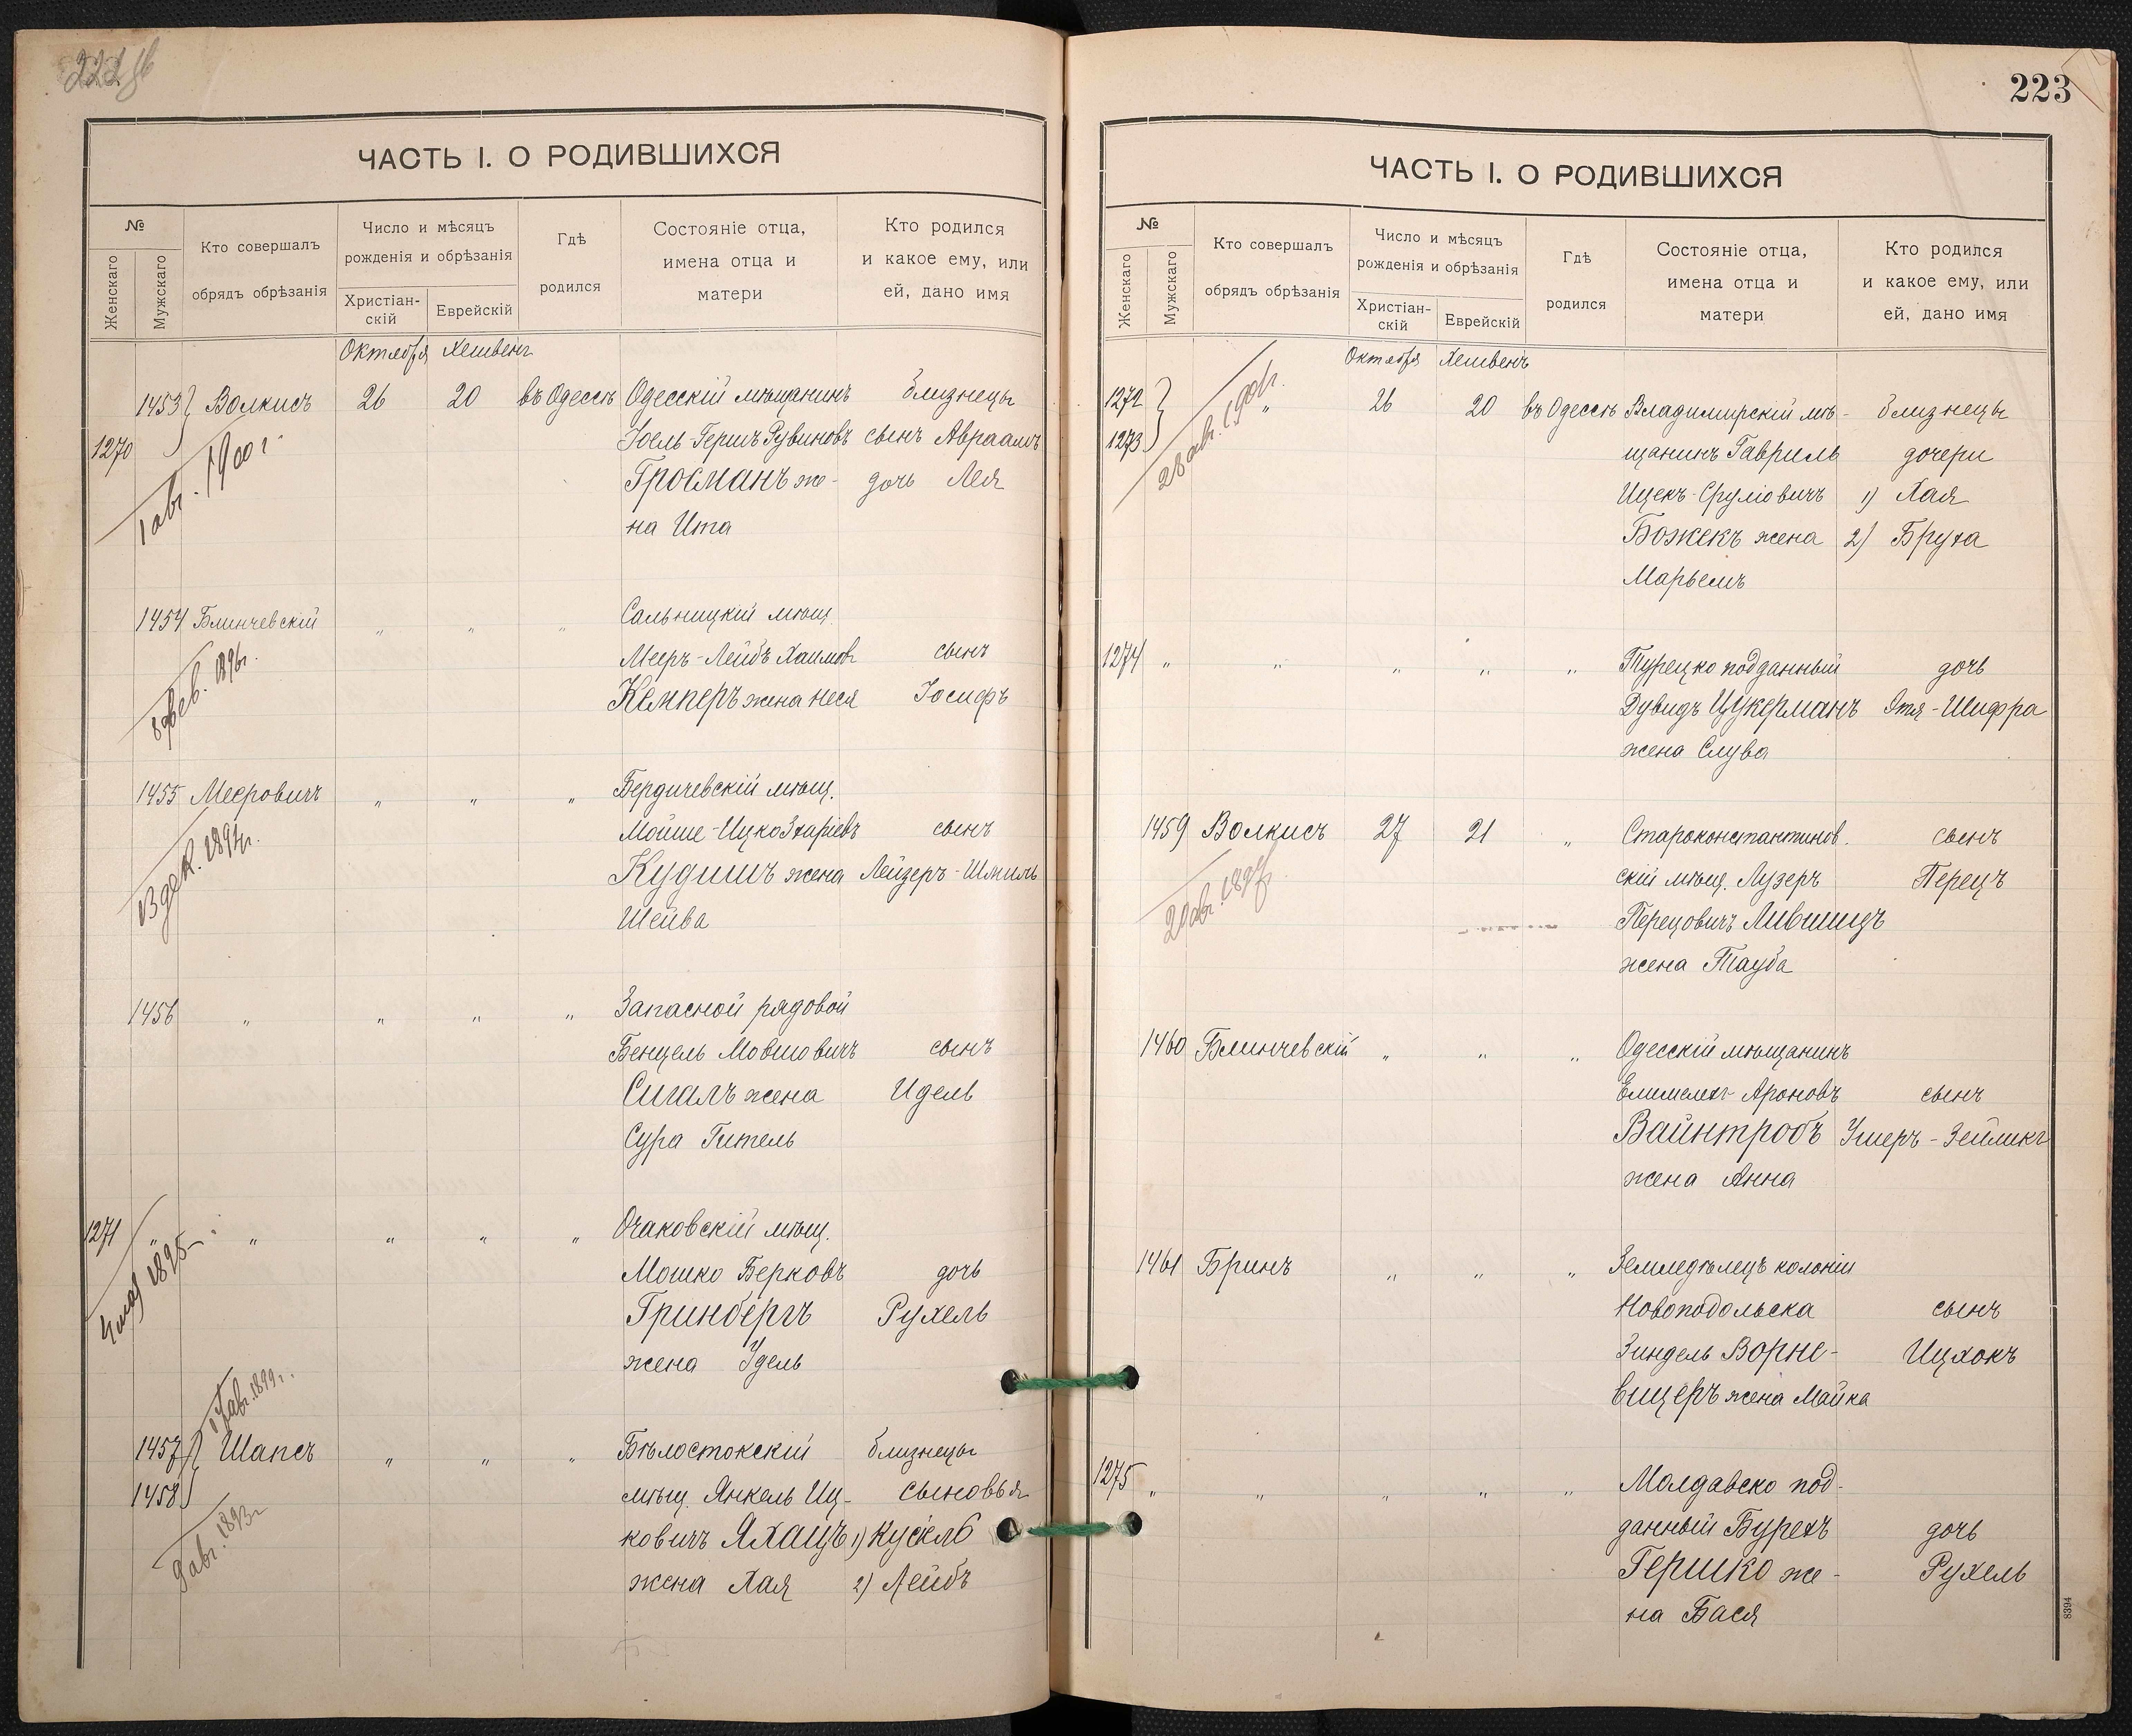 222 об
ЧАСТЬ I. О РОДИВШИХСЯ
№
Женскаго
Мужскаго
Кто совершалъ
обрядъ обрѣзанія
Число и мѣсяцъ
рожденія и обрѣзанія
Христіан-
скій
Еврейскій
Гдѣ
родился
Состояніе отца,
имена отца и
матери
Кто родился
и какое ему, или
ей, дано имя
Октября Хешвенъ
1453 Волкисъ 26 20 въ Одессѣ Одесскій мѣщанинъ близнецы
1270 Іоель-Гершъ Рувиновъ сынъ Авраамъ
Гросманъ же- дочь Лея
на Ита
1 авг. 1900 г.
1454 Блинчевскій " " " Сальницкій мѣщ.
Мееръ-Лейбъ Хаимов сынъ
Кемперъ жена Неся Іосифъ
8 фев. 1896 г.
1455 Мееровичъ " " " Бердичевскій мѣщ.
Мойше-Ицко Зхаріевъ сынъ
Кудишъ жена Лейзеръ-Шмиль
Шейва
13 дек. 1894 г.
1456 " " " " Запасной рядовой
Бенцель Мовшовичъ сынъ
Сигалъ жена Идель
Сура Гитель
1271 " " " " " Очаковскій мѣщ.
Мошко Берковъ дочь
Гринбергъ Рухель
жена Удель
4 мая 1895
17 авг. 1899 г.
1457 Шапсъ " " " Бѣлостокскій близнецы
1458 мѣщ. Янкель Иц- сыновья
ковичъ Яхацъ 1) Кусель
жена Хая 2) Лейбъ
9 авг. 1893 г
223
ЧАСТЬ I. О РОДИВШИХСЯ
№
Женскаго
Мужскаго
Кто совершалъ
обрядъ обрѣзанія
Число и мѣсяцъ
рожденія и обрѣзанія
Христіан-
скій
Еврейскій
Гдѣ
родился
Состояніе отца,
имена отца и
матери
Кто родился
и какое ему, или
ей, дано имя
Октября Хешвенъ
1272 " 26 20 въ Одессѣ Владимирскій мѣ- близнецы
1273 щанинъ Гавриль дочери
Ицекъ-Сруліовичъ 1) Хая
Божекъ жена 2) Бруха
Марьемъ
28 авг. 1901 г.
1274 " " " " " Турецко подданный дочь
Дувидъ Цукерманъ Этя-Шифра
жена Слува
1459 Волкисъ 27 21 " Староконстантинов.
сынъ
скій мѣщ. Лузеръ Перецъ
Перецовичъ Лившицъ
жена Тауба
20 авг. 1897 г.
1460 Блинчевскій " " " Одесскій мѣщанинъ
Елимелехъ Ароновъ сынъ
Вайнтробъ Ушеръ-Зейликъ
жена Анна
1461 Бринъ " " " Земледѣлецъ колоніи
Новоподольска сынъ
Зиндель Ворне- Ицхокъ
вицеръ жена Майка
1275 " " " " " Молдавско под-
данный Бурехъ дочь
Гершко же- Рухель
на Бася
8394